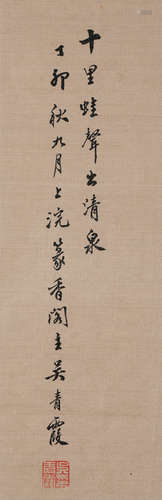 十里蛙聲出清泉
丁卯秋九月上浣篆香閣主吴青霞